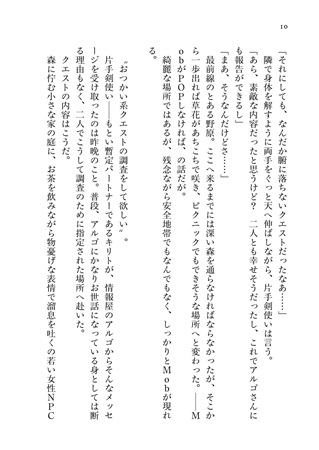 10
「それにしても、なんだか腑に落ちないクエストだったなあ……」
隣で身体を解すように両手をぐっと天へ伸ばしながら、片手剣使いは言う。
「あら、素敵な内容だったと思うけど？　二人とも幸せそうだったし、これでアルゴさんに
も報告ができるし」
「まあ、そうなんだけどさ……」
最前線のとある野原。ここへ来るまでには深い森を通らなければならなかったが、そこか
ら一歩出れば草花があちこちで咲き、ピクニックでもできそうな場所へと変わった。――M
obがPOPしなければ、の話だが。
綺麗な場所ではあるが、残念ながら安全地帯でもなんでもなく、しっかりとMobが現れ
る。
〝おつかい系クエストの調査をして欲しい〟。
片手剣使い――もとい暫定パートナーであるキリトが、情報屋のアルゴからそんなメッセ
ージを受け取ったのは昨晩のこと。普段、アルゴにかなりお世話になっている身としては断
る理由もなく、二人でこうして調査のために指定された場所へ赴いた。
クエストの内容はこうだ。
森に佇む小さな家の庭に、お茶を飲みながら物憂げな表情で溜息を吐く若い女性NPC